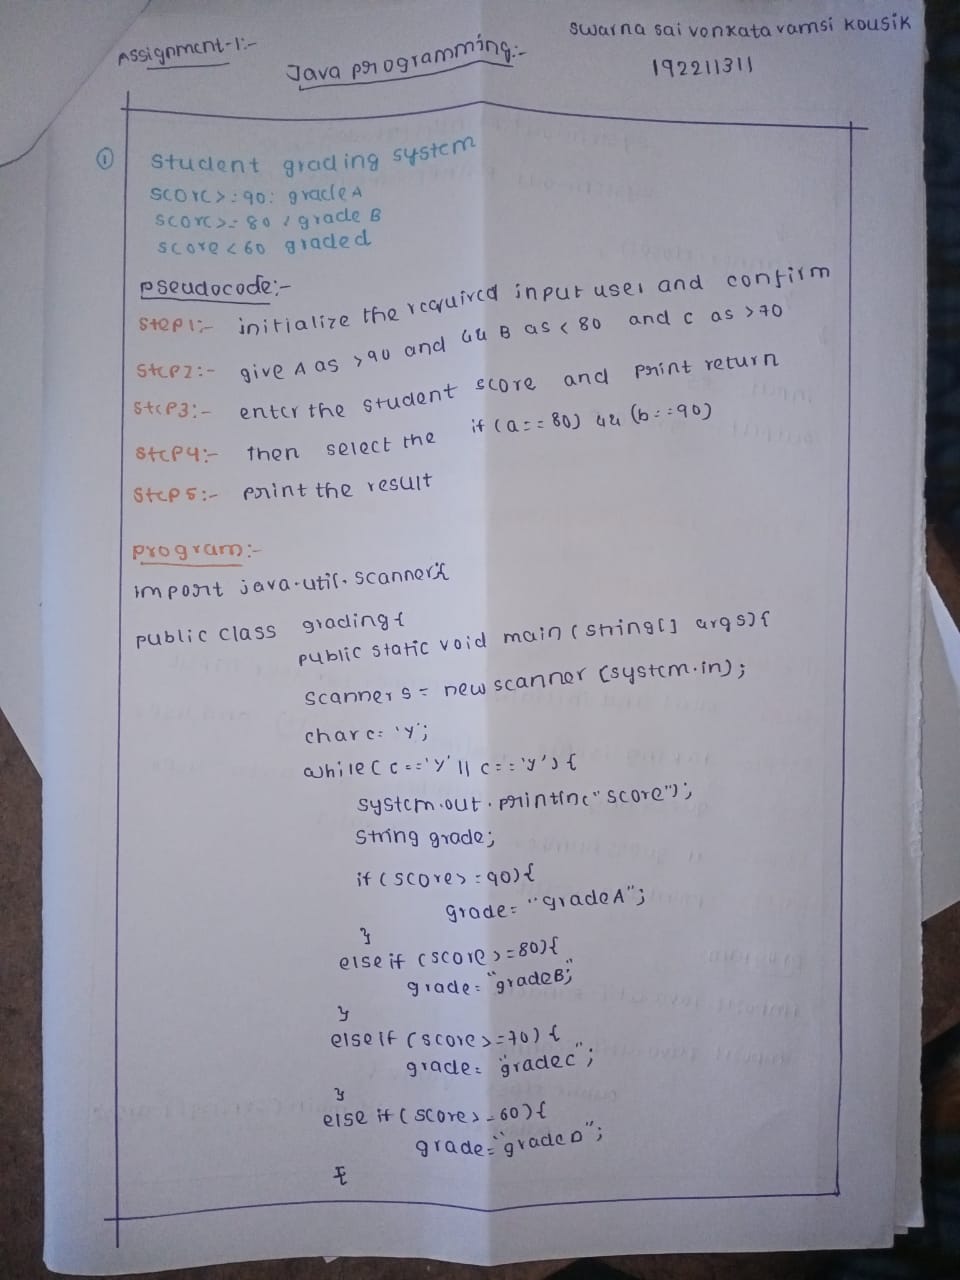 Assignment-1:-
Java programming:-
swarna sai venkata vamsi kousik
192211311
① student grading system
score>=90: grade A
score>=80 : grade B
score<60 graded
pseudocode:-
Step1:- initialize the required input user and confirm
Step2:- give A as >90 and && B as <80 and c as >70
Step3:- enter the student score and print return
Step4:- then select the if (a==80) && (b==90)
Step5:- print the result
program:-
import java.util.scanner;
public class grading{
public static void main (string[] args){
scanner s = new scanner (system.in);
char c= 'y';
while ( c=='y' || c=='y') {
system.out.println("score");
String grade;
if (score>=90){
grade= "gradeA";
}
else if (score>=80){
grade= "gradeB";
}
else if (score>=70) {
grade= "gradec";
}
else if ( score>=60){
grade="gradeD";
}